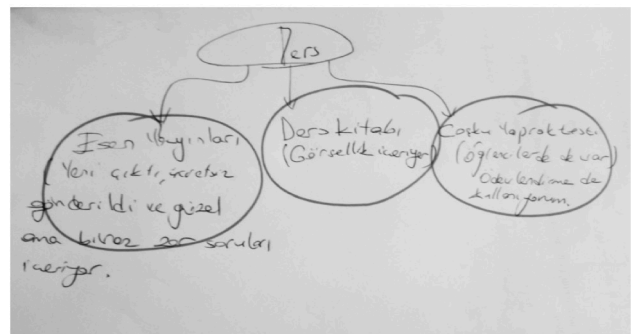 Ders
Esen Yayınları
(Yeni çıktı, ücretsiz
gönderildi ve güzel
ama biraz zor soruları
içeriyor.
Ders kitabı
(Görsellik içeriyor)
Coşku Yaprak Testi
(Öğrencilerde de var
Ödevlendirme de
kullanıyorum.